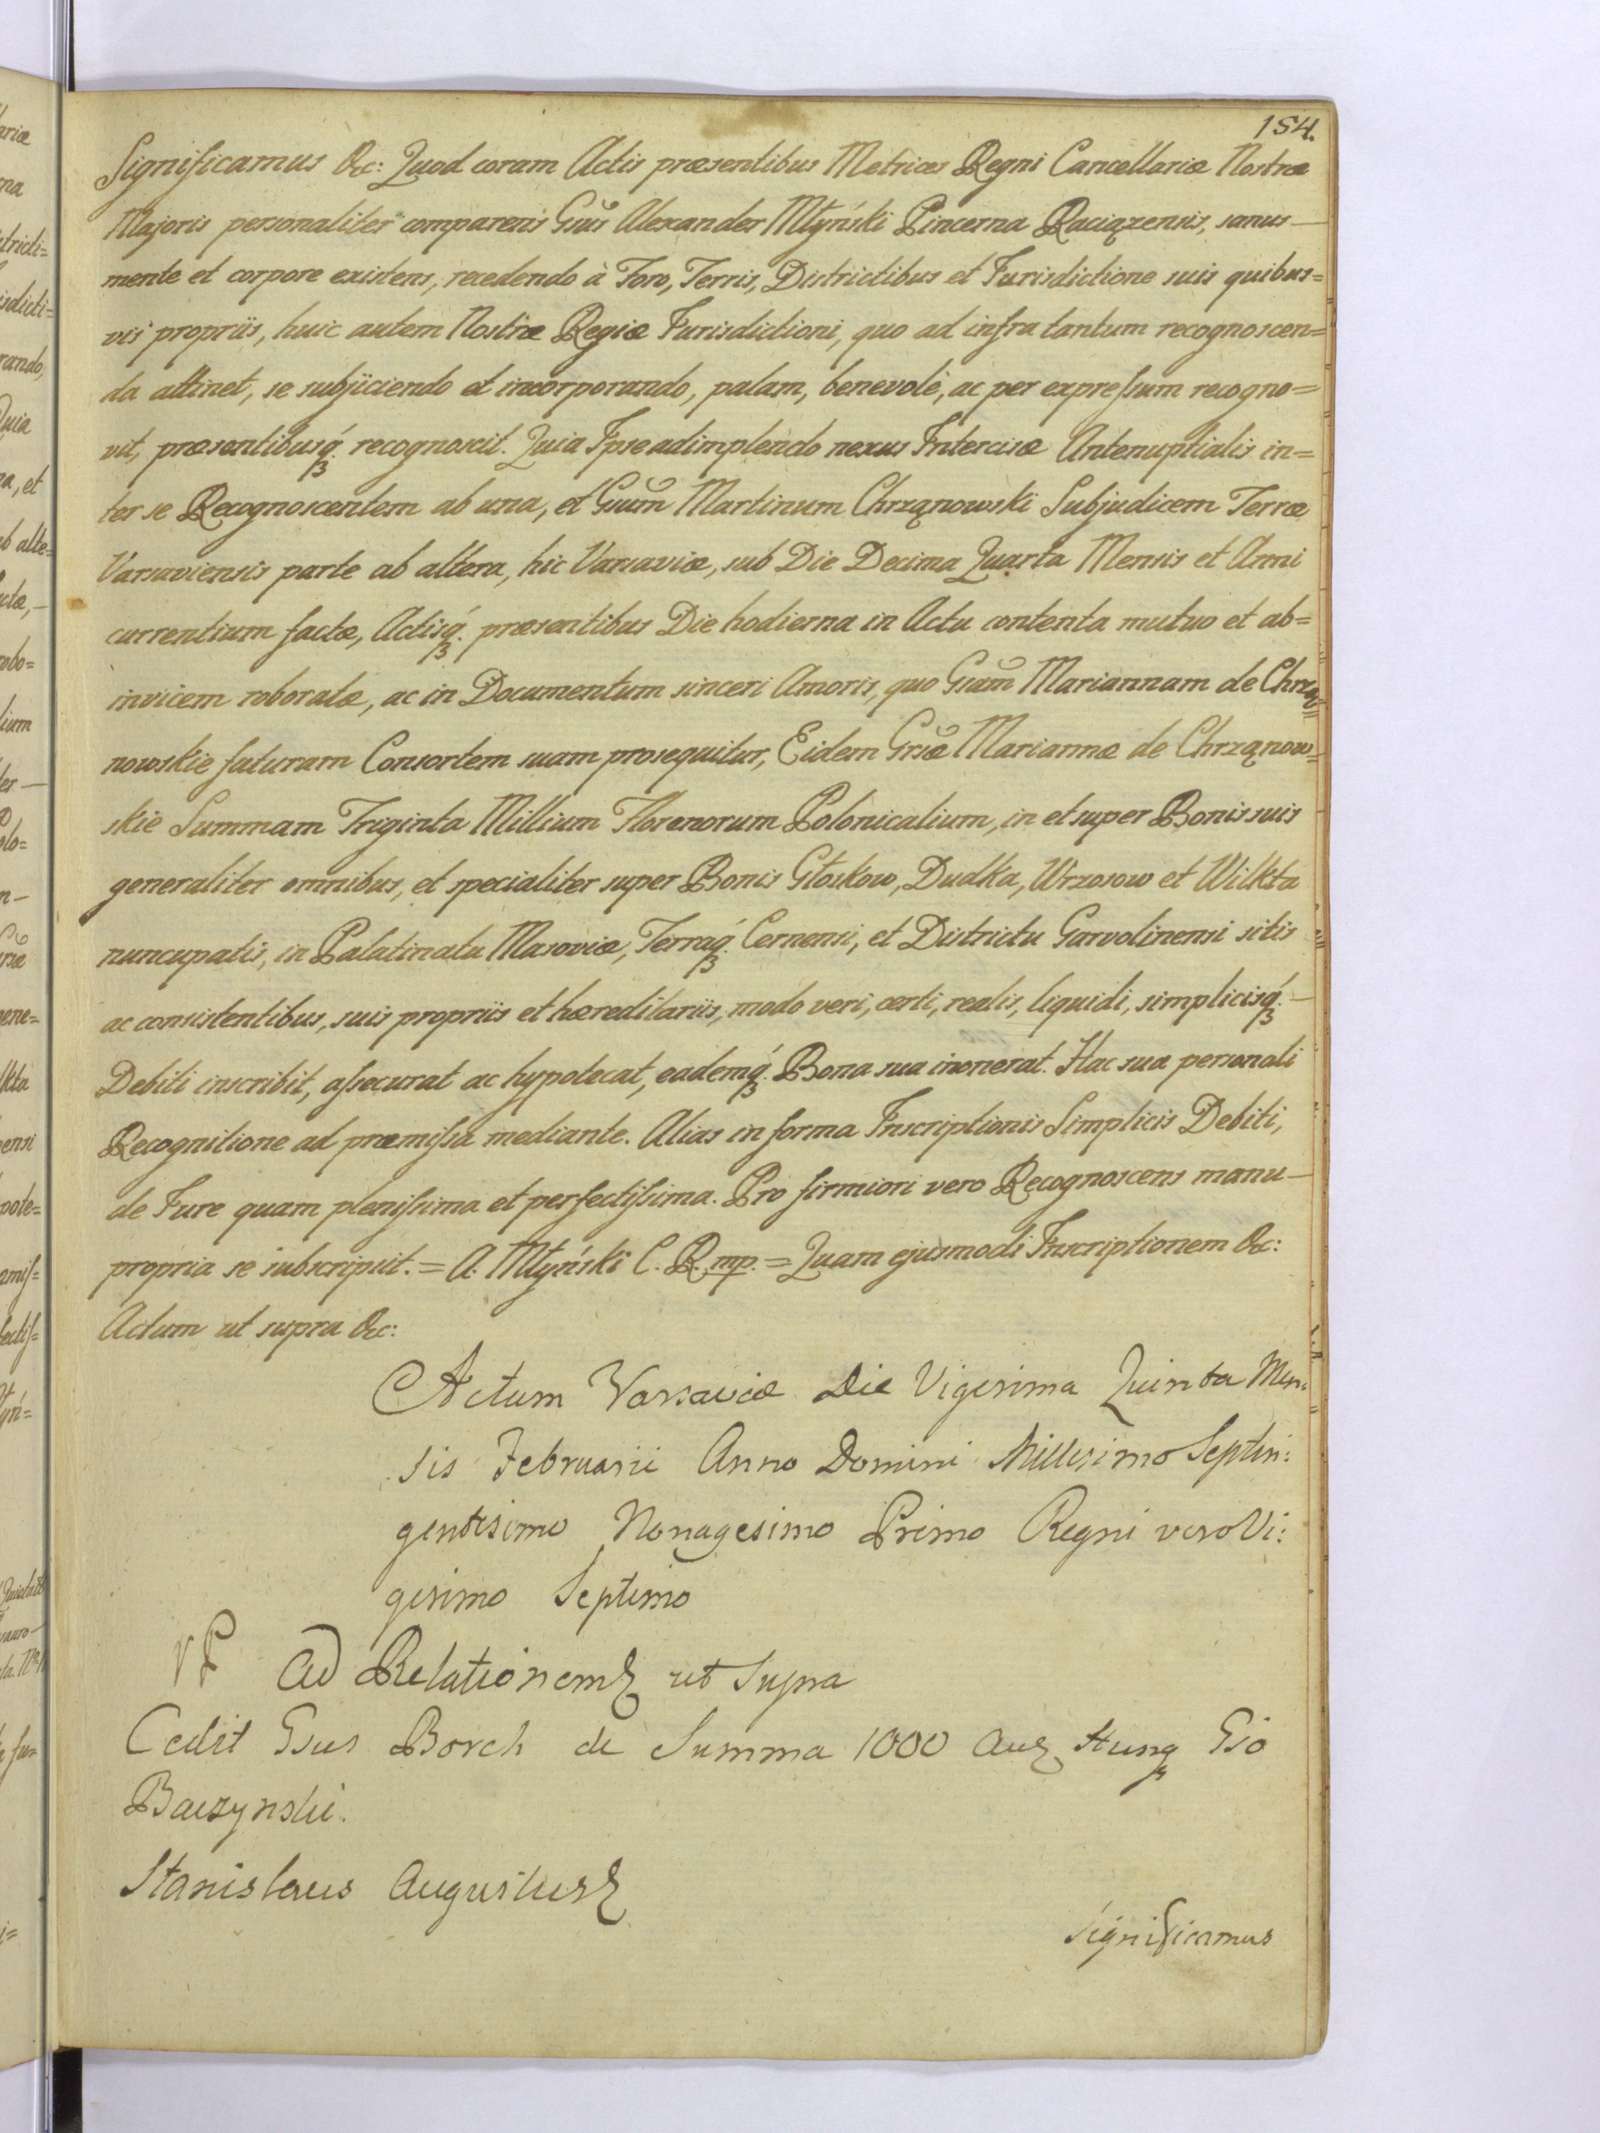 154.
Significamus &c: Quod coram Actis præsentibus Metrices Regni Cancellariæ Nostræ
Majoris personaliter comparens Gsus Alexander Młyński Pincerna Raciązensis, sanus
mente et corpore existens, recedendo à Foro, Terris, Districtibus et Jurisdictione suis quibus=
vis propriis, huic autem Nostræ Regiæ Jurisdictioni, quo ad infra tantum recognoscen=
da attinet, se subjiciendo et incorporando, palam, benevolè, ac per expressum recogno=
vit, præsentibusq́3 recognoscit. Quia Ipse adimplendo nexus Intercisæ Antenuptialis in=
ter se Recognoscentem ab una, et Gsum Martinum Chrząnowski Subjudicem Terræ
Varsaviensis parte ab altera, hic Varsaviæ, sub Die Decima Quarta Mensis et Anni
currentium factæ, Actisq́3 præsentibus Die hodierna in Actu contenta mutuo et ab=
invicem roboratæ, ac in Documentum sinceri Amoris, quo Gsam Mariannam de Chrzą=
nowskie futuram Consortem suam prosequitur, Eidem Gsæ Mariannæ de Chrząnow=
skie Summam Triginta Millium Florenorum Polonicalium, in et super Bonis suis
generaliter omnibus, et specialiter super Bonis Głoskow, Dudka, Wrzosow et Wilkta
nuncupatis, in Palatinatu Masoviæ, Terraq́3 Cernensi, et Districtu Garvolinensi sitis
ac consistentibus, suis propriis et hæreditariis, modo veri, certi, realis, liquidi, simplicisq́3
Debiti inscribit, assecurat ac hypotecat, eademq́3 Bona sua inonerat. Hac sua personali
Recognitione ad præmissa mediante. Alias in forma Inscriptionis Simplicis Debiti,
de Jure quam plenissima et perfectissima. Pro firmiori vero Recognoscens manu
propria se subscripsit. = A. Młyński C. R. mp. = Quam ejusmodi Inscriptionem &c:
Actum ut supra &c:
Actum Varsaviæ Die Vigesima Quinta Men:
sis Februarii Anno Domini Millesimo Septin:
gentesimo Nonagesimo Primo Regni vero Vi:
gesimo Septimo
Ad Relationem ut supra
Cedit Gsus Borch de Summa 1000 Aur Hung Gso
Baczynski.
Stanislaus Augustus
Significamus